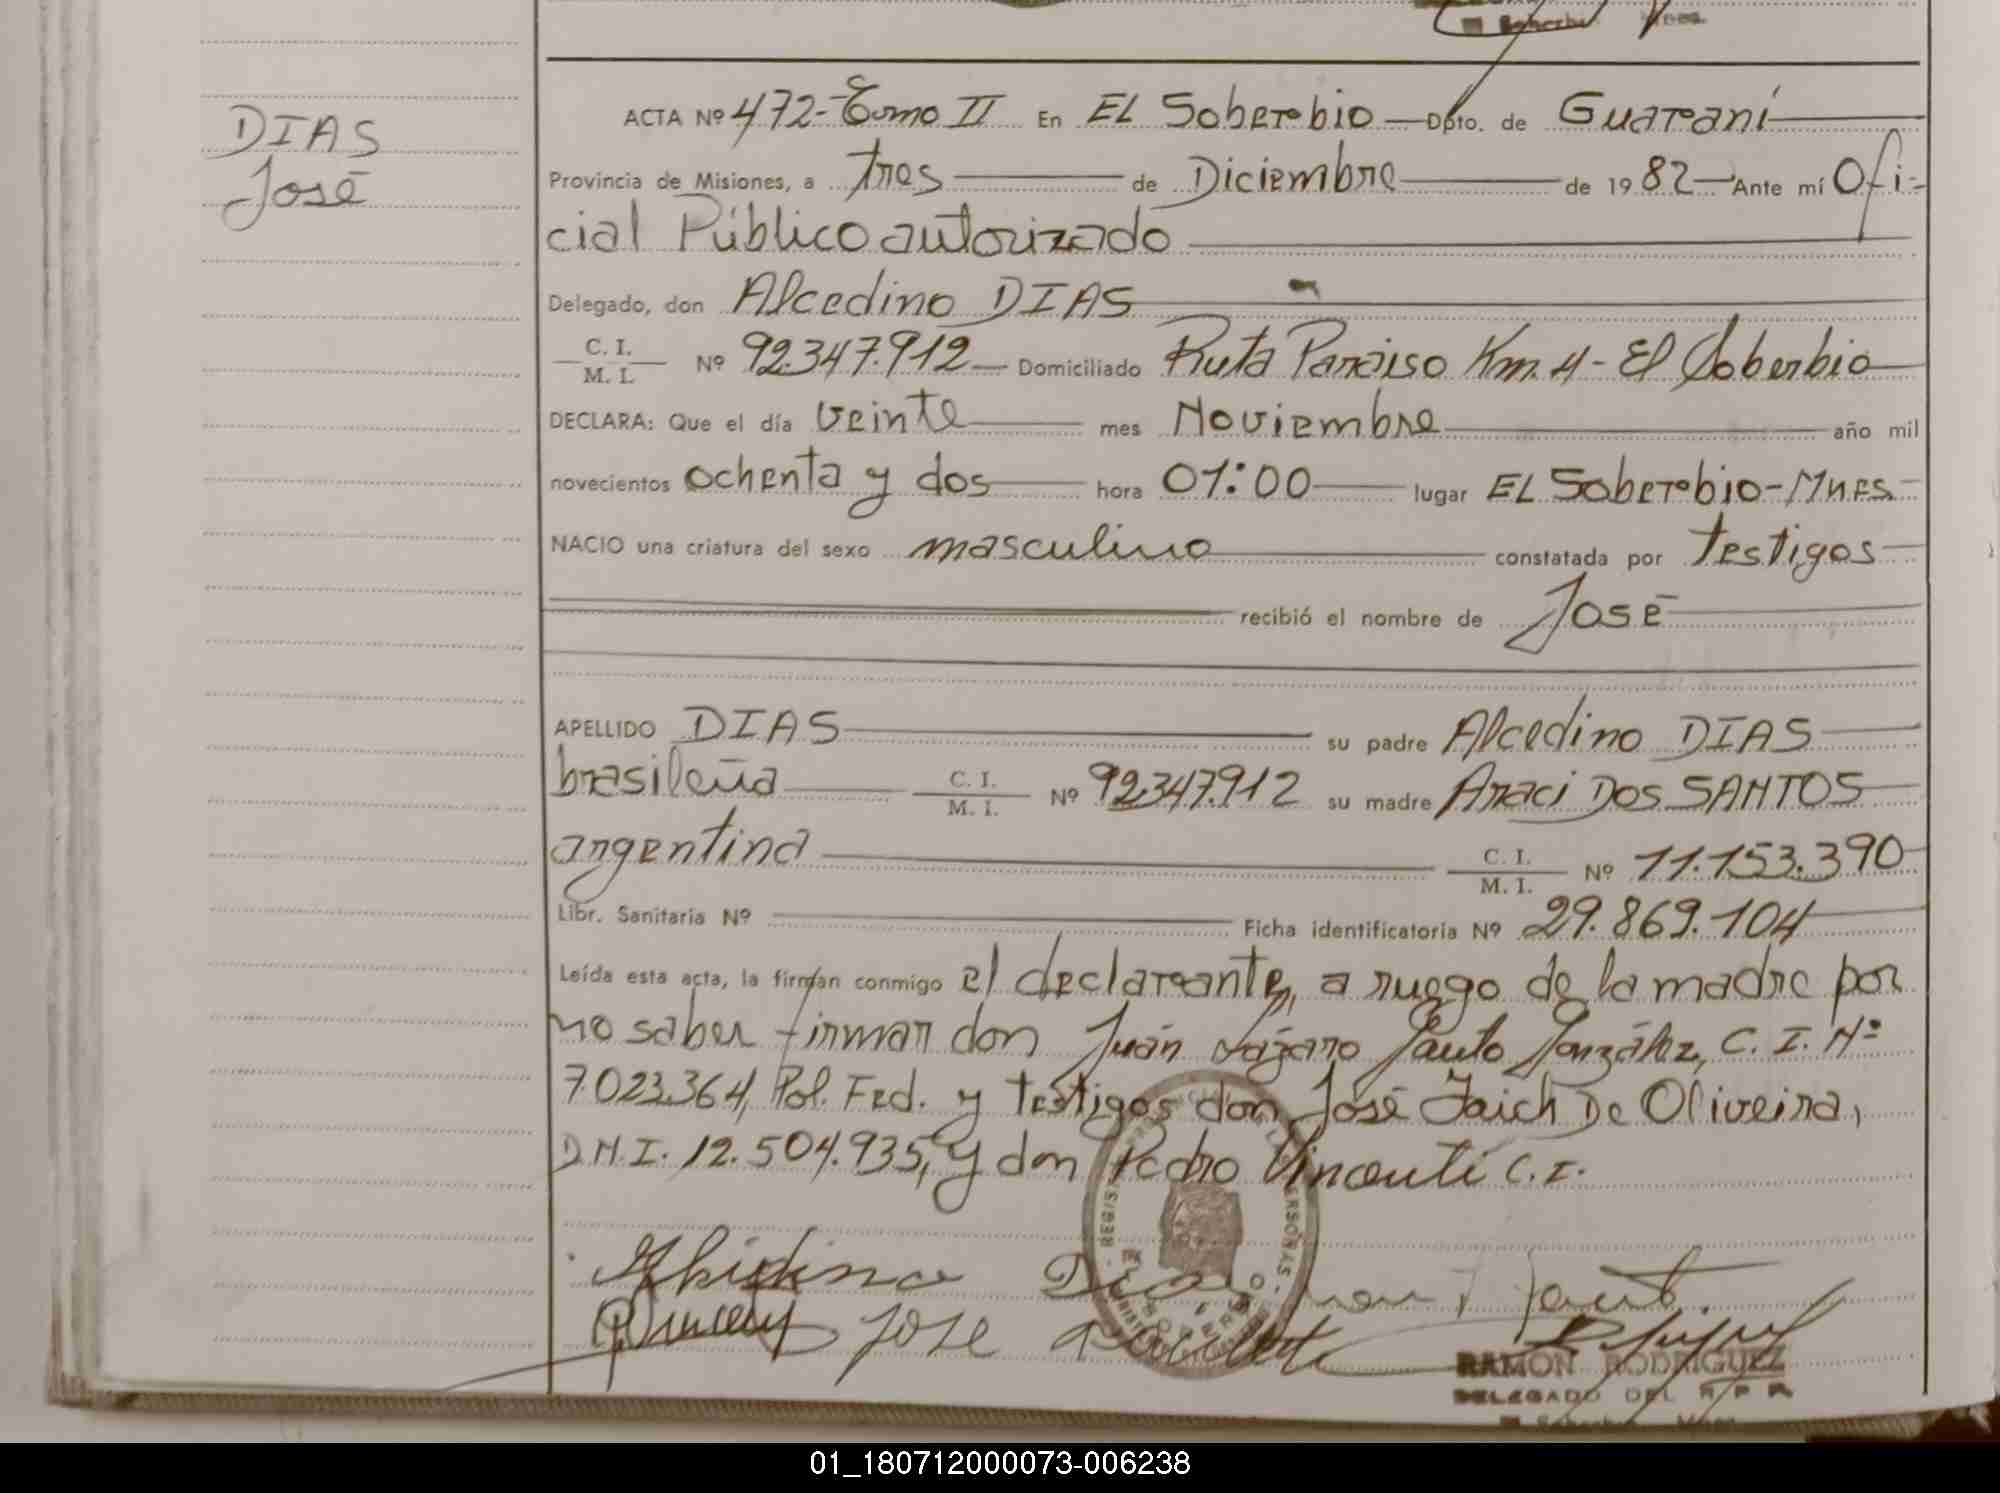 DIAS
José
ACTA Nº 472-Tomo II En EL Soberbio Dpto. de Guaraní
Provincia de Misiones, a tres de Diciembre de 1982 Ante mí Ofi-
cial Público autorizado
Delegado, don Alcedino DIAS
C. I.
M. I. Nº 92.347.912 Domiciliado Ruta Paraiso Km. 4 - El Soberbio
DECLARA: Que el día veinte mes Noviembre año mil
novecientos ochenta y dos hora 01:00 lugar EL Soberbio-Mnes
NACIO una criatura del sexo masculino constatada por testigos
recibió el nombre de José
APELLIDO DIAS su padre Alcedino DIAS
brasileña C. I. M. I. Nº 92.347.912 su madre Araci DOS SANTOS
argentina C. I. M. I. Nº 11.153.390
Libr. Sanitaria Nº Ficha identificatoria Nº 29.869.104
Leída esta acta, la firman conmigo el declarante, a ruego de la madre por
no saber firmar don Juán Lázaro Sauto González, C. I. Nº
7.023.364, Pol. Fed. y testigos don José Jaich De Oliveira,
D.N.I. 12.504.935, y don Pedro C.I.
Dias
Jose
RAMON RODRIGUEZ
DELEGADO DEL R P P
01_180712000073-006238